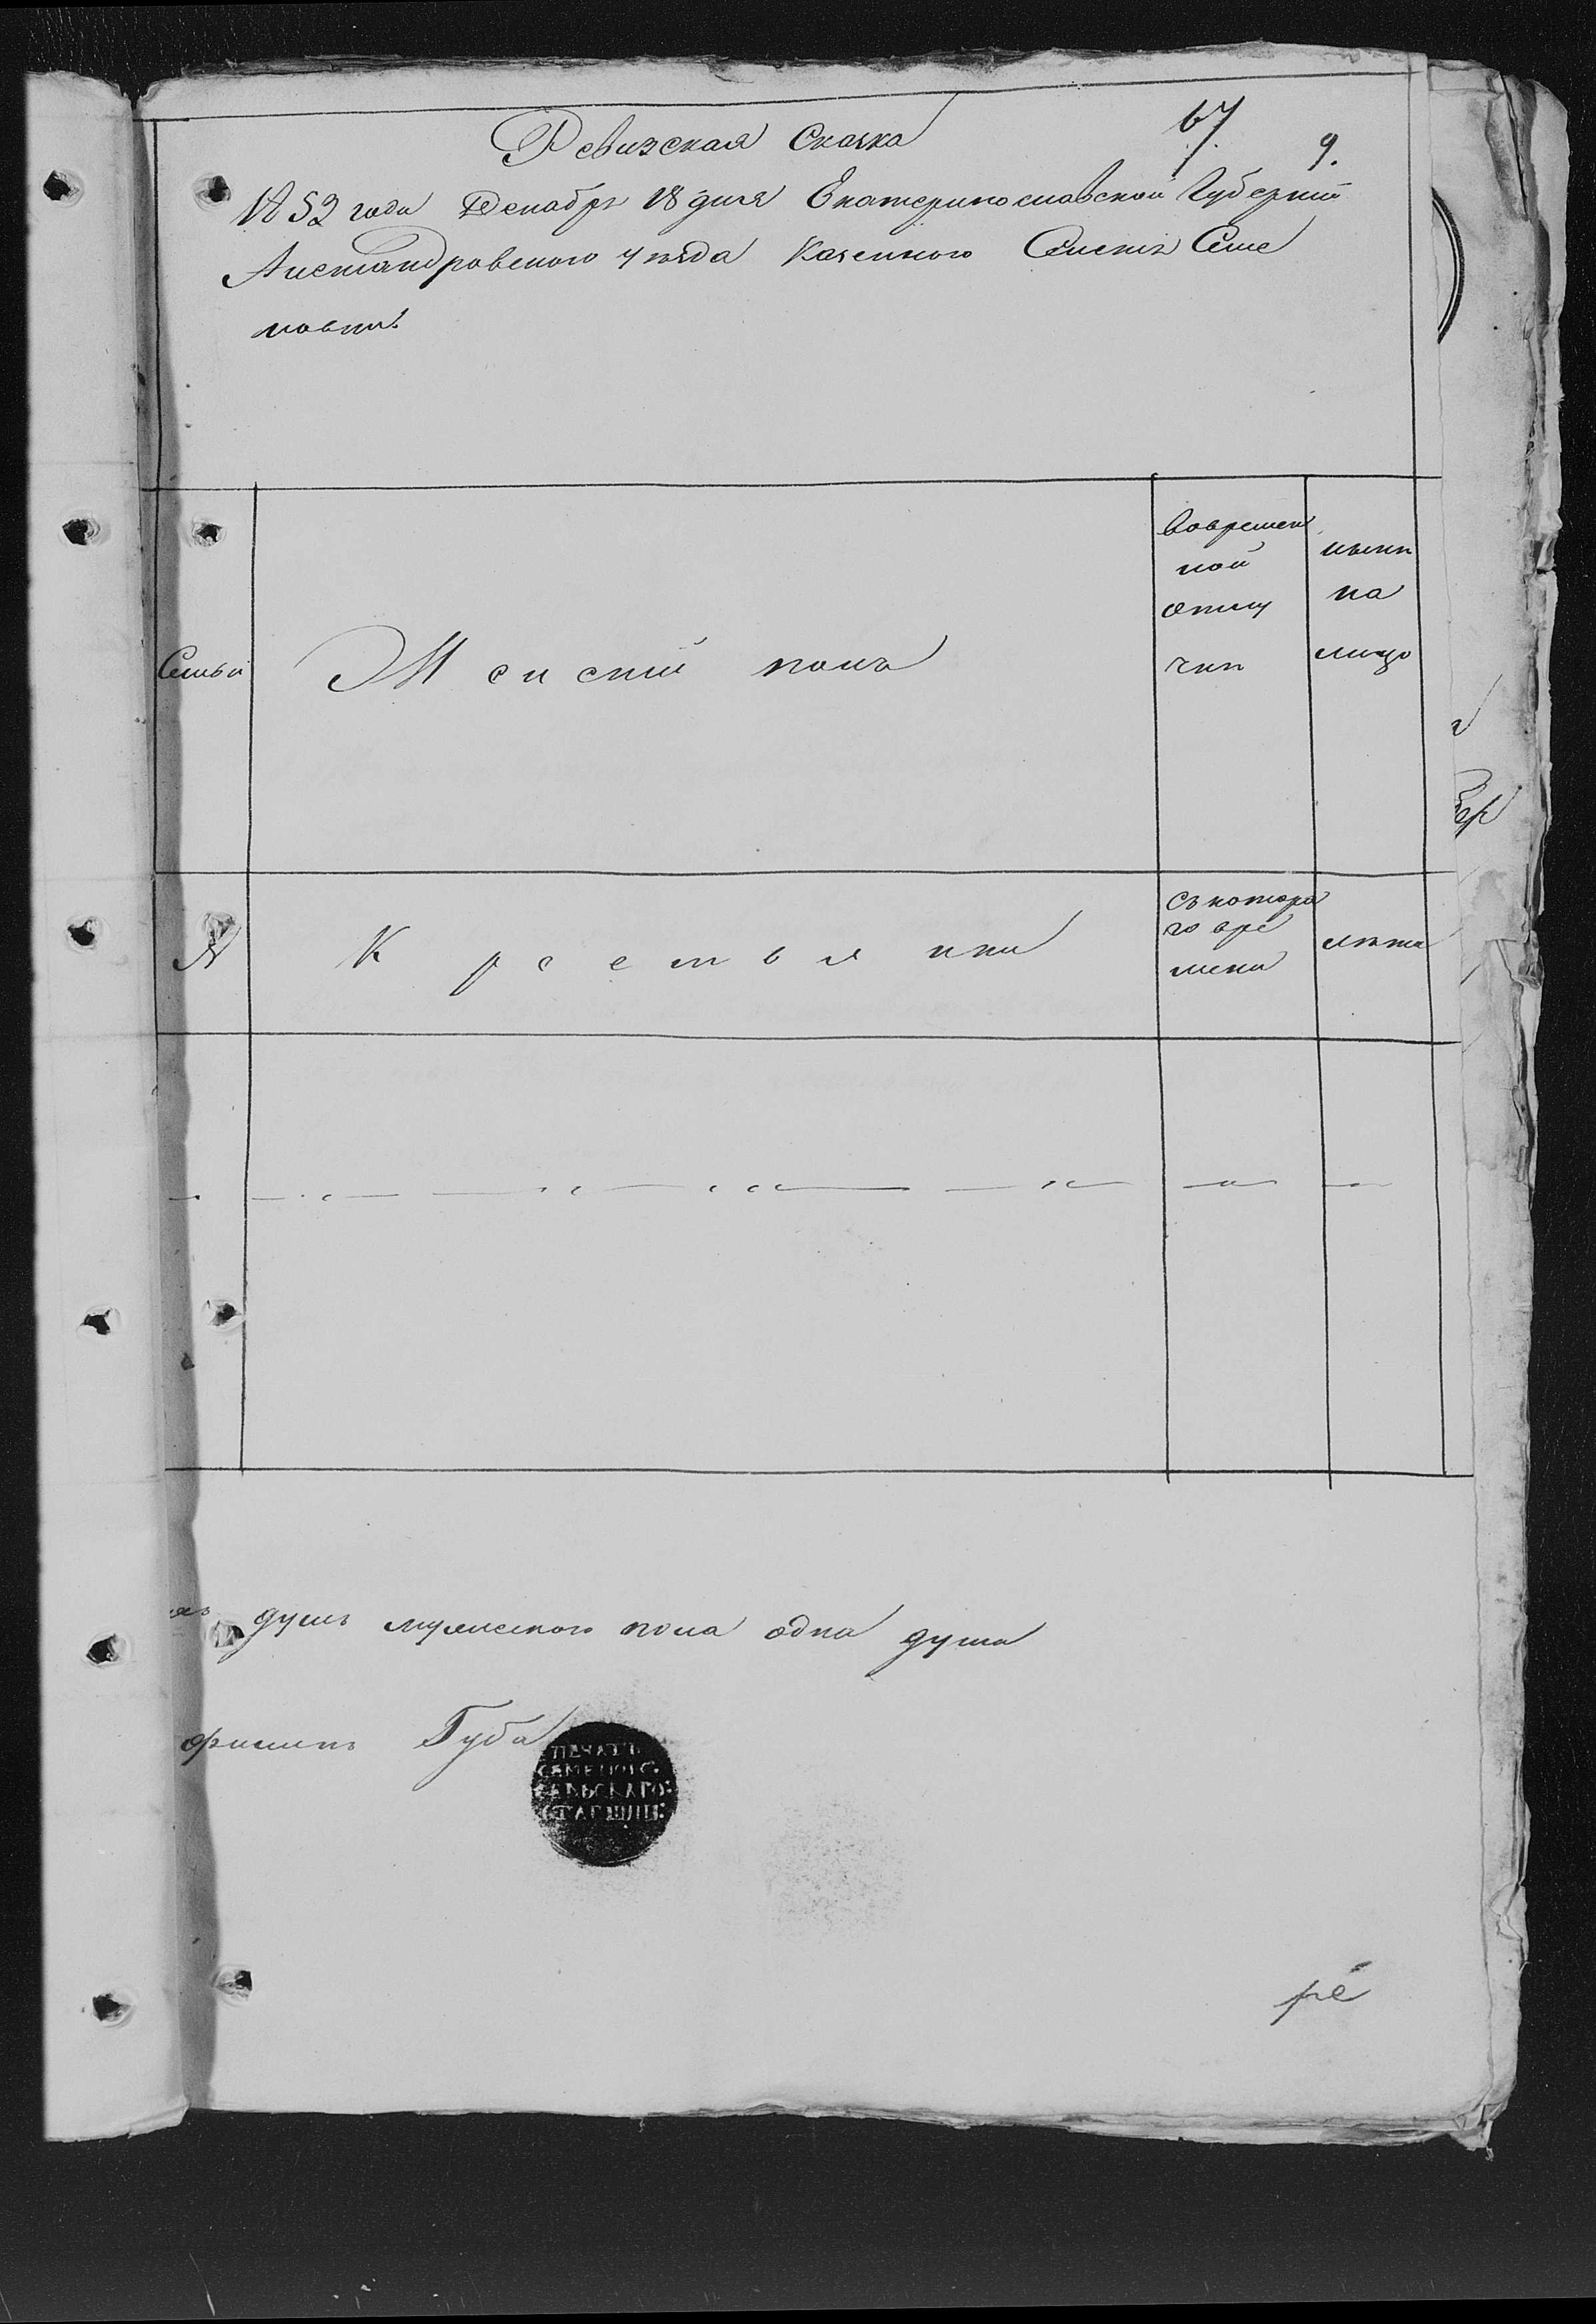 67
9.
Ревизская Сказка
1852 года Декабря 18 дня Екатеринославской Губернии
Александровского уезда Казенного Селенія Семе
новки
Семьи
Женскій полъ
вовремен
ной
отлу
чкѣ
нынѣ
на
лицо
№
Крестьянки
съ которо
го вре
мени
лѣта
душъ мужеского пола одна душа
Губа
ПЕЧАТЬ
СЕМЕНОВС:
СЕЛЬСКАГО:
СТАРШИН:
ре